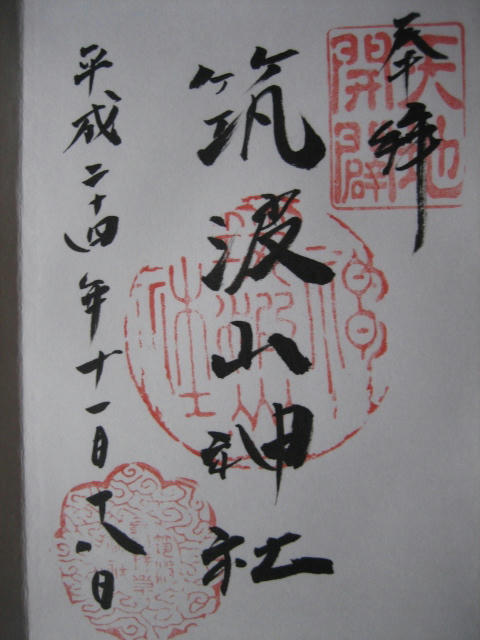 奉拝
天地開闢
筑波山神社
平成二十四年十一月十八日